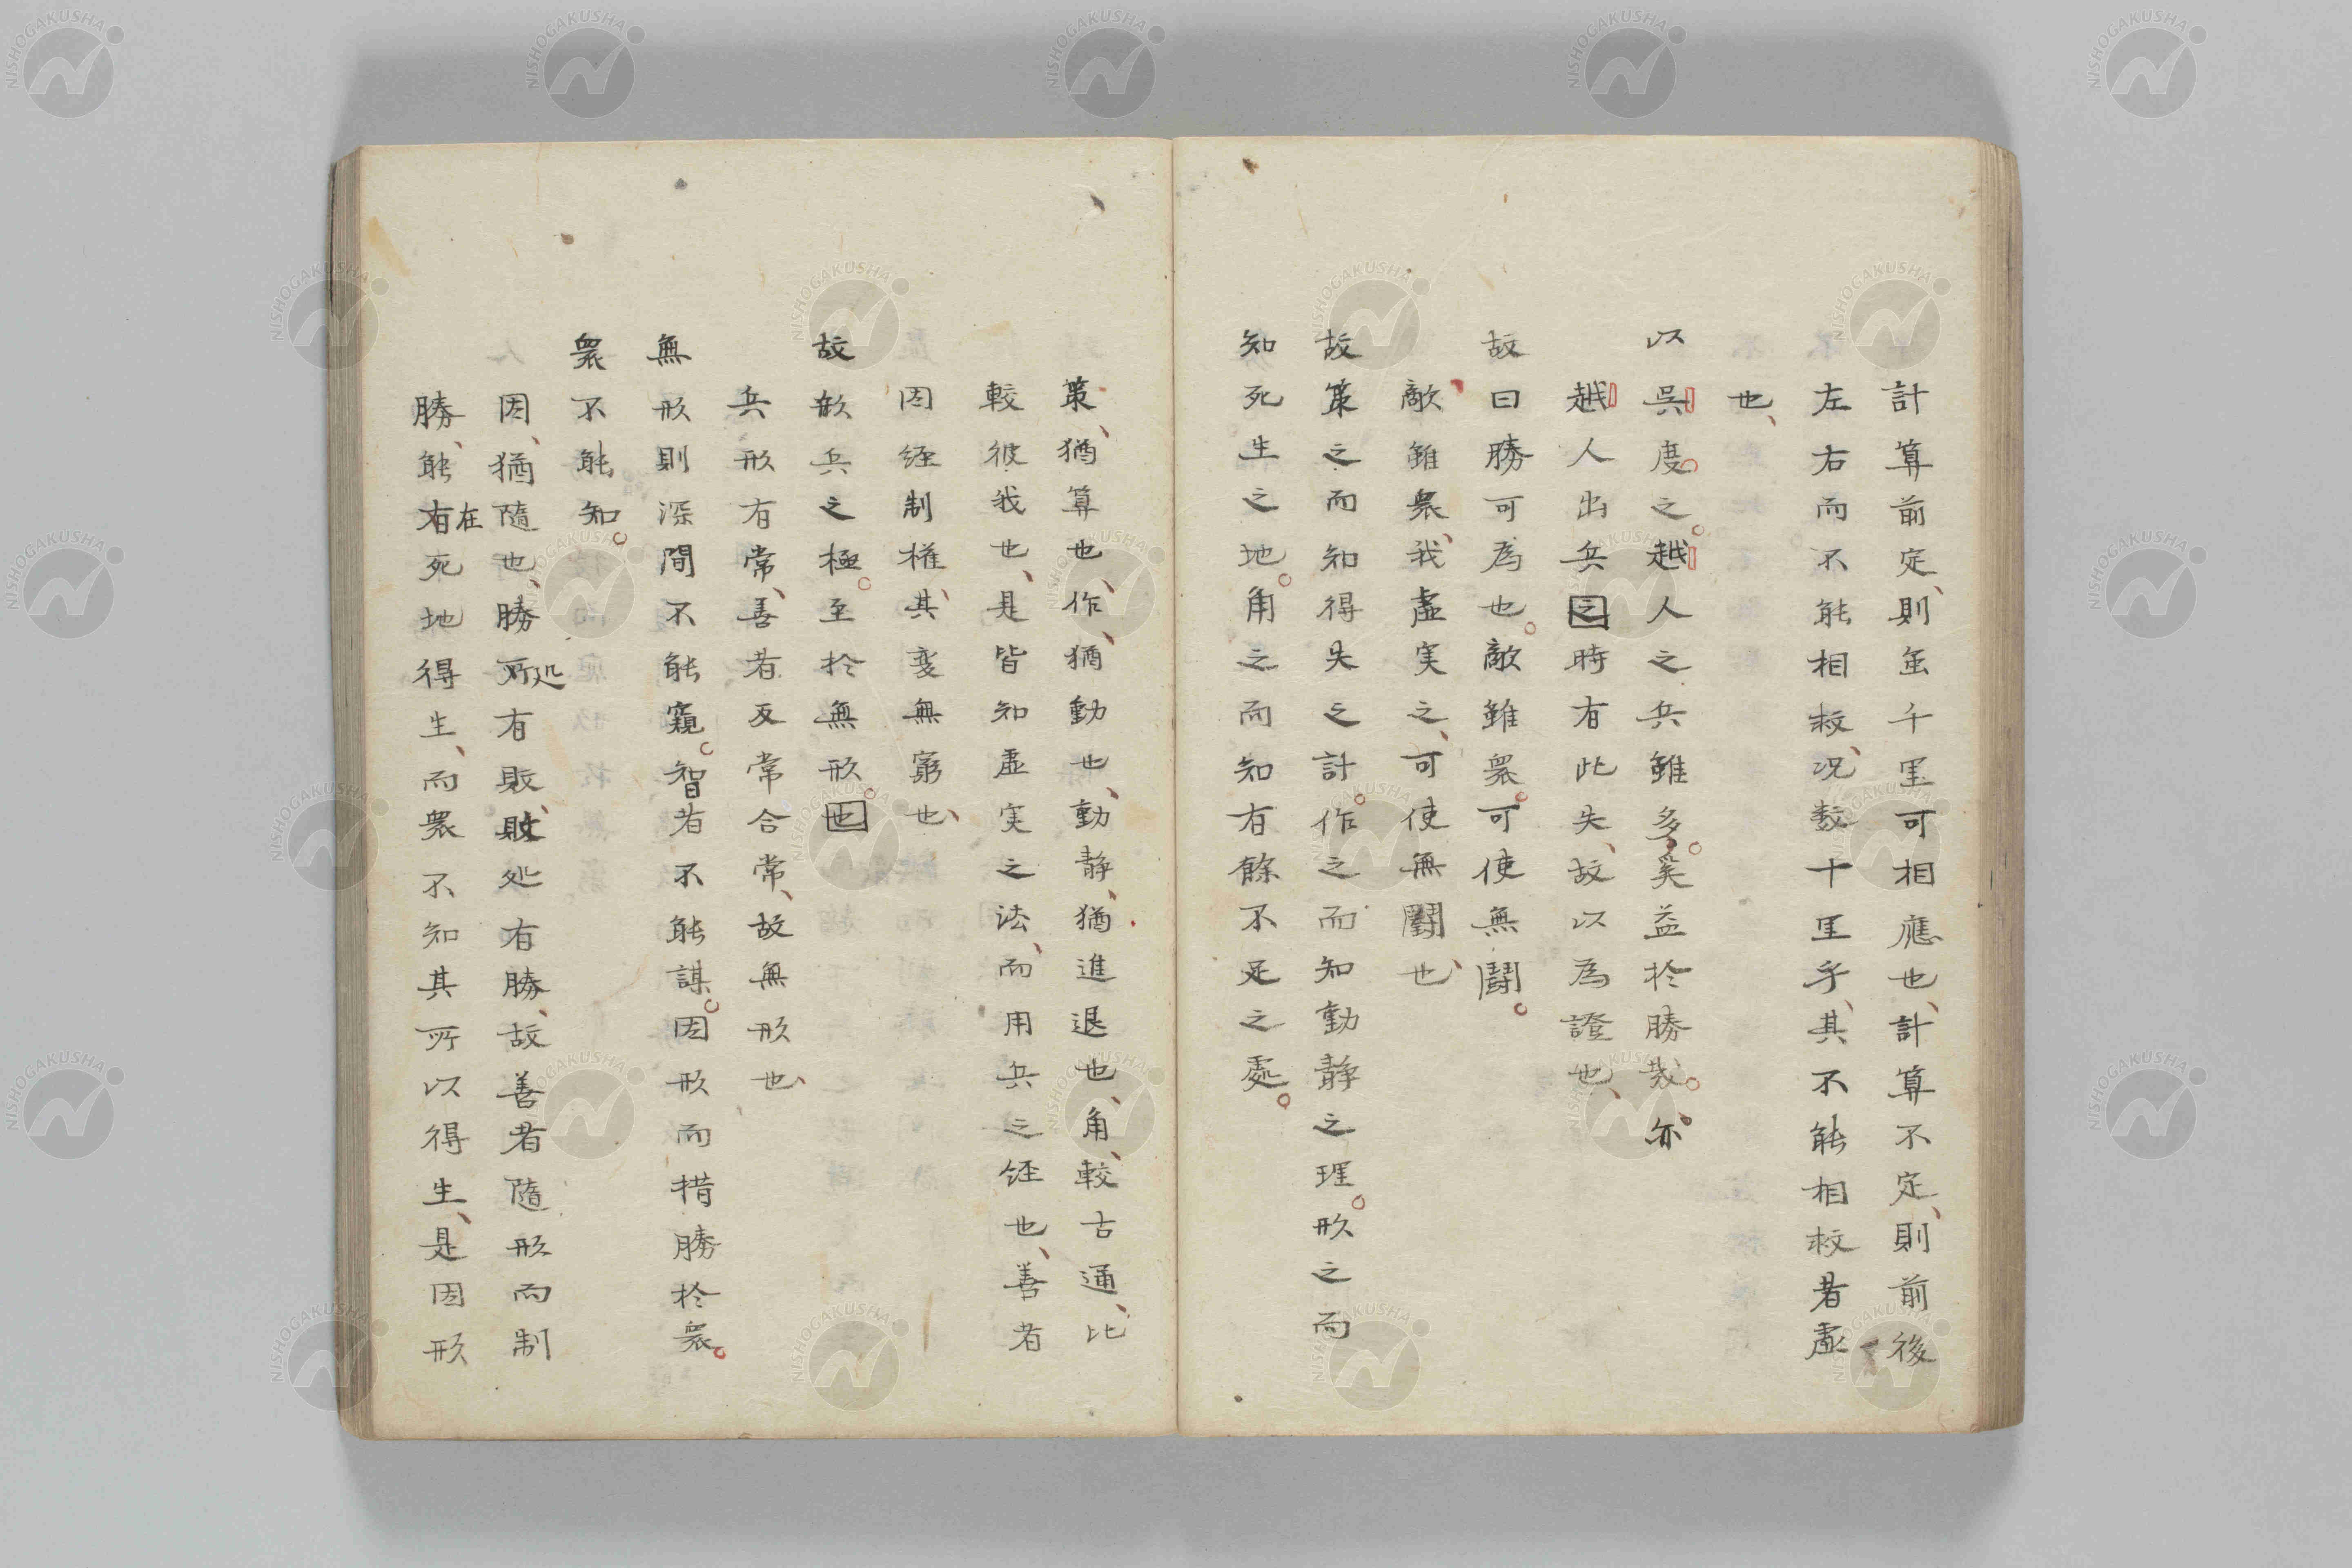 計算前定、則𫝆千里可相應也、計算不定、則前後
左右而不能相救、况数十里乎、其不能相救者虚
也、
以吳度之。越人之兵雖多。奚益於勝哉。亦
越人出兵之時有此失、故以為證也、
故曰勝可為也。敵雖衆。可使無鬪。
敵雖衆、我虚実之、可使無鬪也、
故策之而知得失之計。作之而知動静之理。形之而
知死生之地。角之而知有餘不足之處。
策、猶算也、作、猶動也、動静、猶進退也、角、較古通、比
較彼我也、是皆知虚実之法、而用兵之経也、善者
因経制権、其変無窮也、
故形兵之極。至於無形。也
兵形有常、善者反常合常、故無形也、
無形則深間不能窺。智者不能謀。因形而措勝於衆。
衆不能知。
因、猶隨也、勝所処有敗、敗処有勝、故善者隨形而制
勝、能有在死地得生、而衆不知其所以得生、是因形
NISHOGAKUSHA